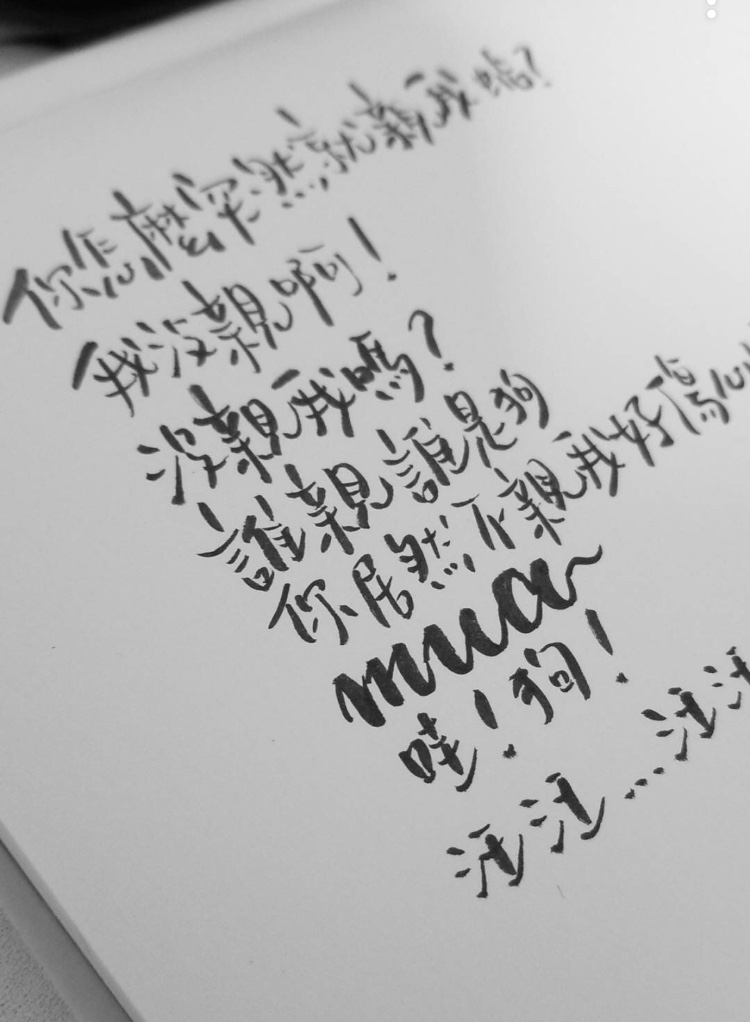 你怎麼突然就親我蛤?
我沒親啊!
沒親我嗎?
誰親誰是狗
你居然不親我好傷心
mua~
哇!狗!
汪汪...汪汪